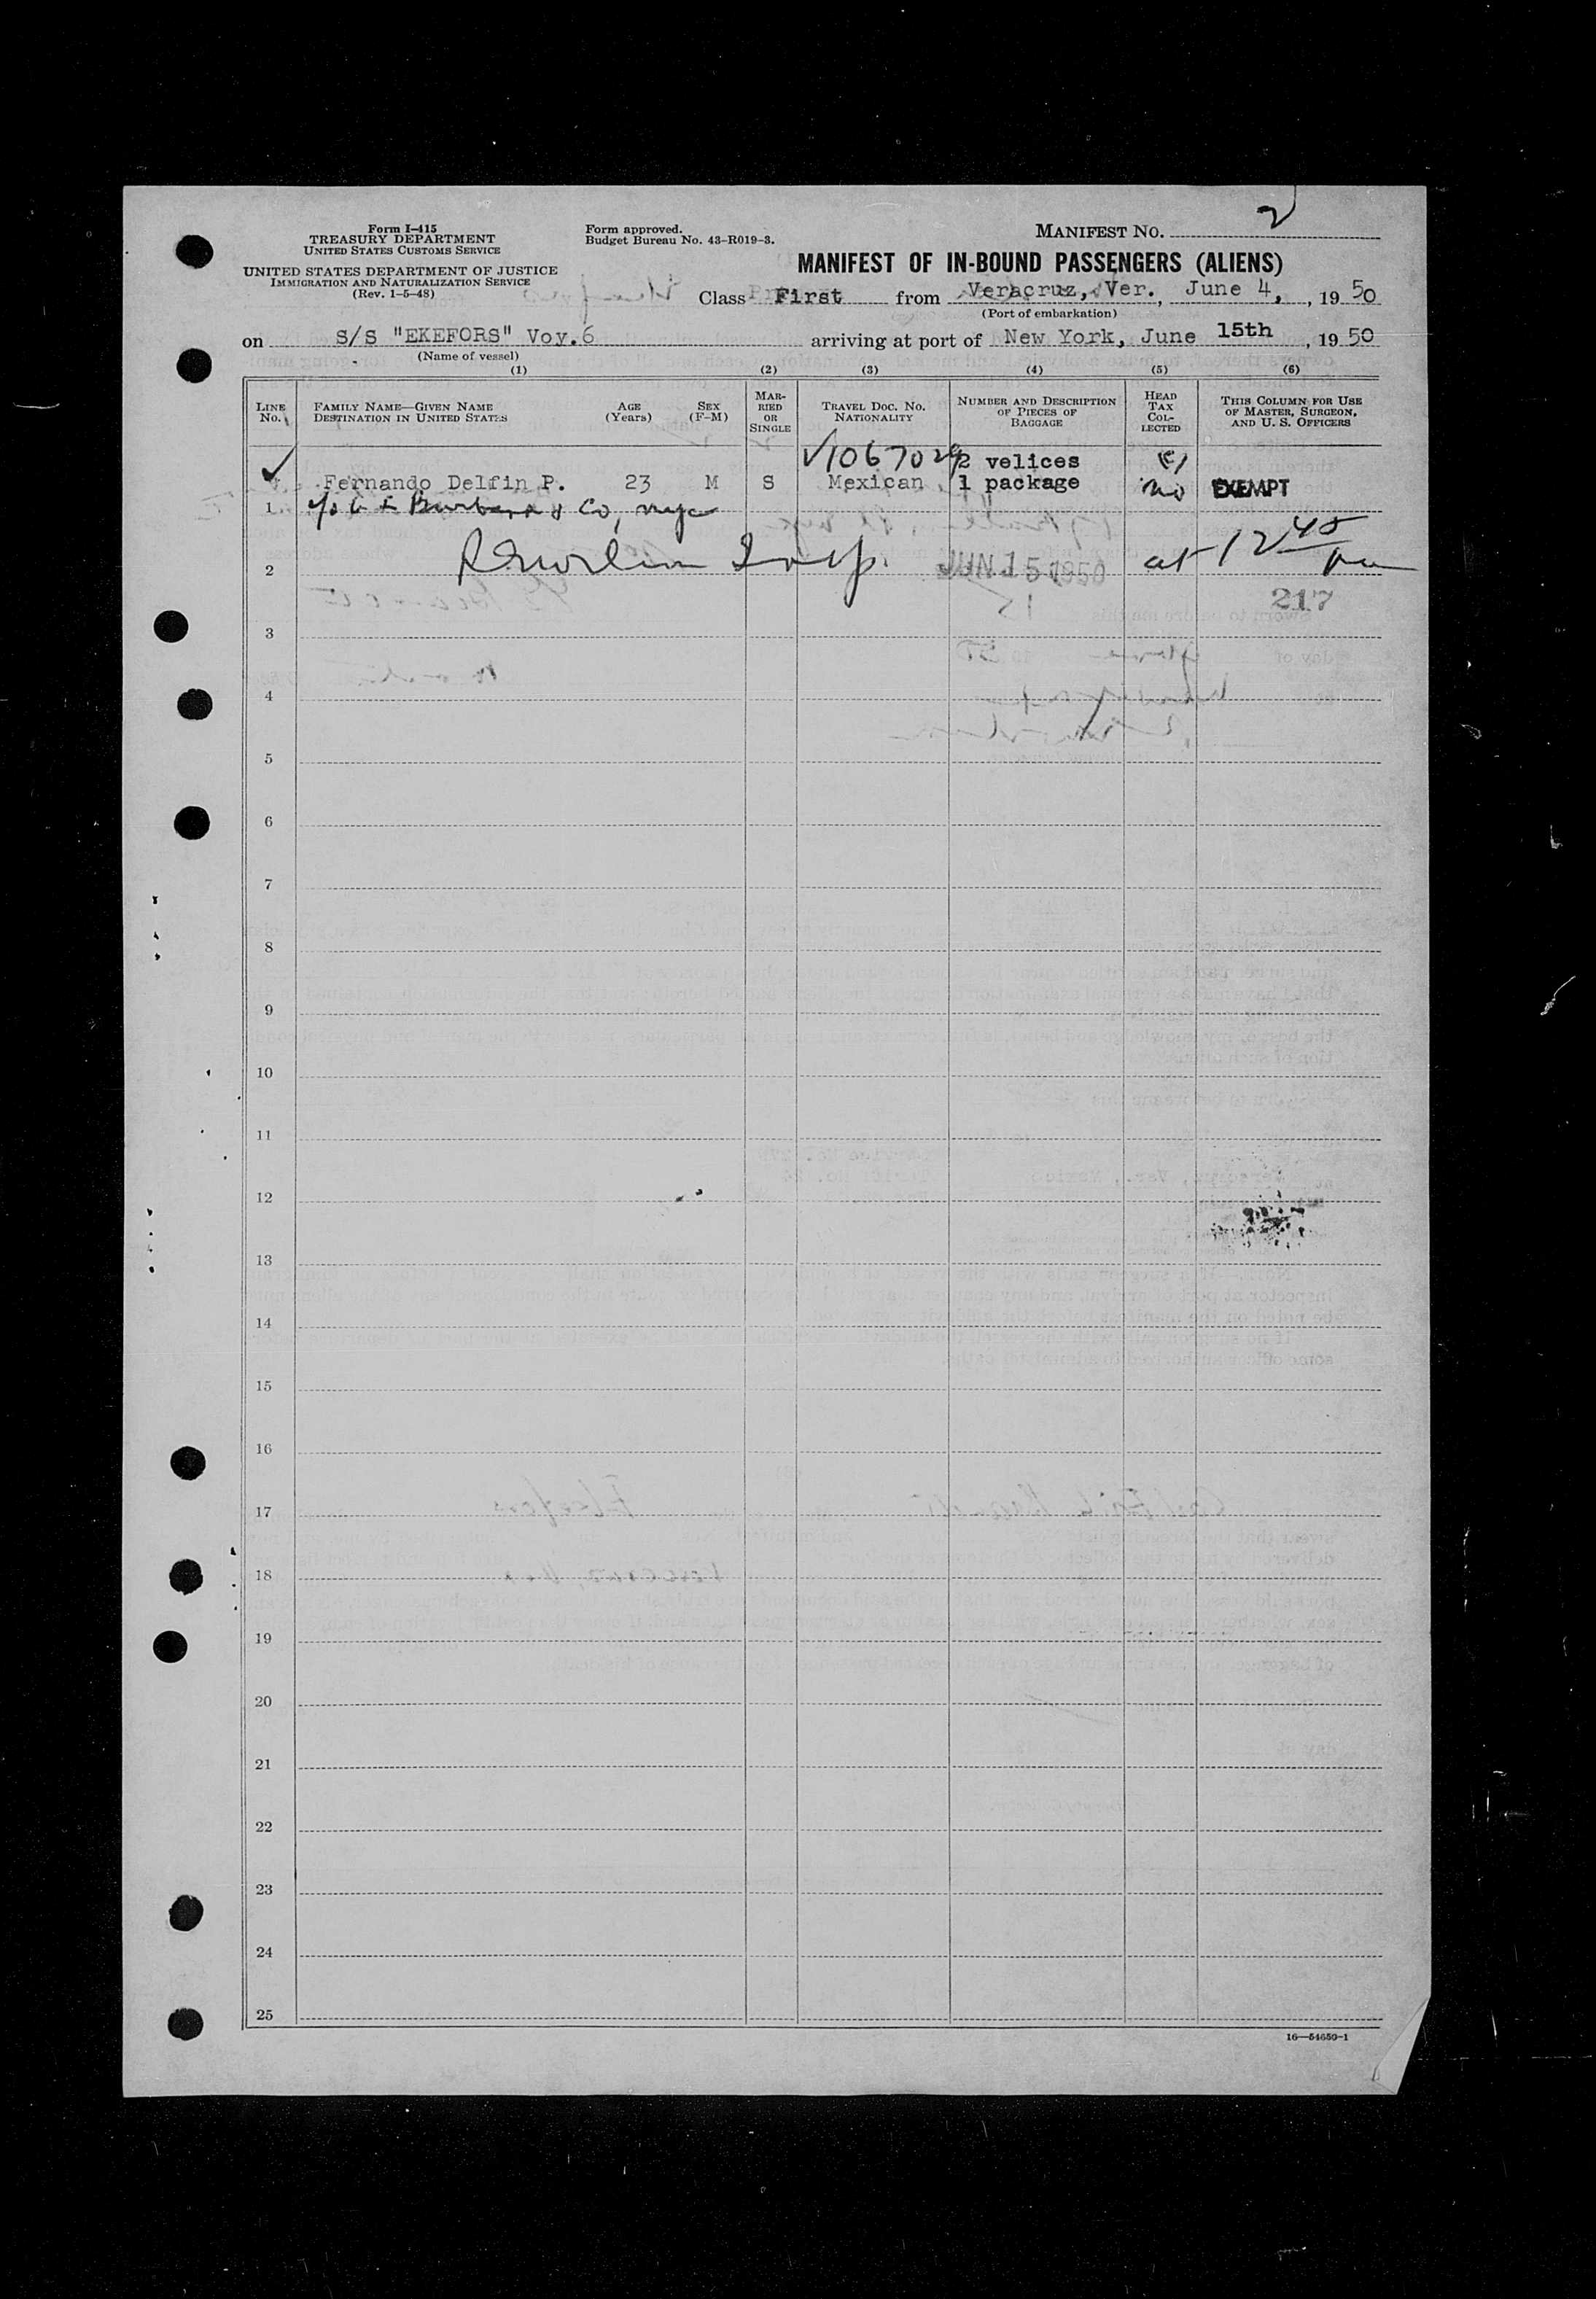 Form I-415
TREASURY DEPARTMENT
UNITED STATES CUSTOMS SERVICE
UNITED STATES DEPARTMENT OF JUSTICE
IMMIGRATION AND NATURALIZATION SERVICE
(Rev. 1-5-48)
Form approved.
Budget Bureau No. 43-R019-3.
MANIFEST No. 2
MANIFEST OF IN-BOUND PASSENGERS (ALIENS)
Class First from Veracruz, Ver., June 4, , 19 50
(Port of embarkation)
on S/S "EKEFORS" Voy.6 arriving at port of New York, June 15th , 19 50
(Name of vessel)
(1) (2) (3) (4) (5) (6)
LINE No. FAMILY NAME—GIVEN NAME DESTINATION IN UNITED STATES AGE (Years) SEX (F-M) MARRIED OR SINGLE TRAVEL DOC. NO. NATIONALITY NUMBER AND DESCRIPTION OF PIECES OF BAGGAGE HEAD TAX COLLECTED THIS COLUMN FOR USE OF MASTER, SURGEON, AND U. S. OFFICERS
√1067029 2 velices
Fernando Delfin P. 23 M S Mexican 1 package no EXEMPT
1 & Co, nyc
2 Insp. JUN 15 1950 at 12 45 pm
217
3
4
5
6
7
8
9
10
11
12
13
14
15
16
17
18
19
20
21
22
23
24
25
16—54650-1